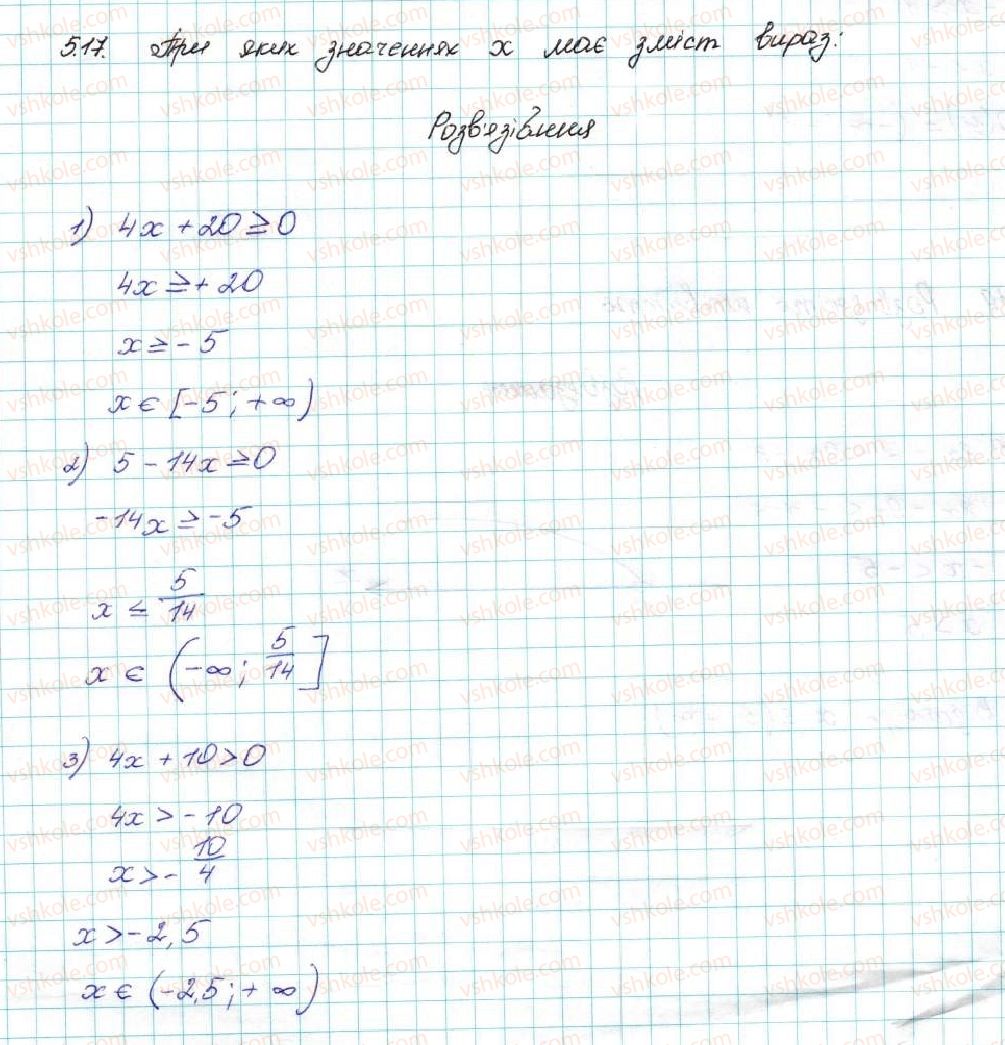 5.17. При яких значеннях x має зміст вираз:
Розв'язівання
1) 4x + 20 ≥ 0
4x ≥ + 20
x ≥ - 5
x ∈ [-5; +∞)
2) 5 - 14x ≥ 0
-14x ≥ -5
x ≤ 5/14
x ∈ (-∞; 5/14]
3) 4x + 10 > 0
4x > - 10
x > - 10/4
x > - 2,5
x ∈ (-2,5; +∞)